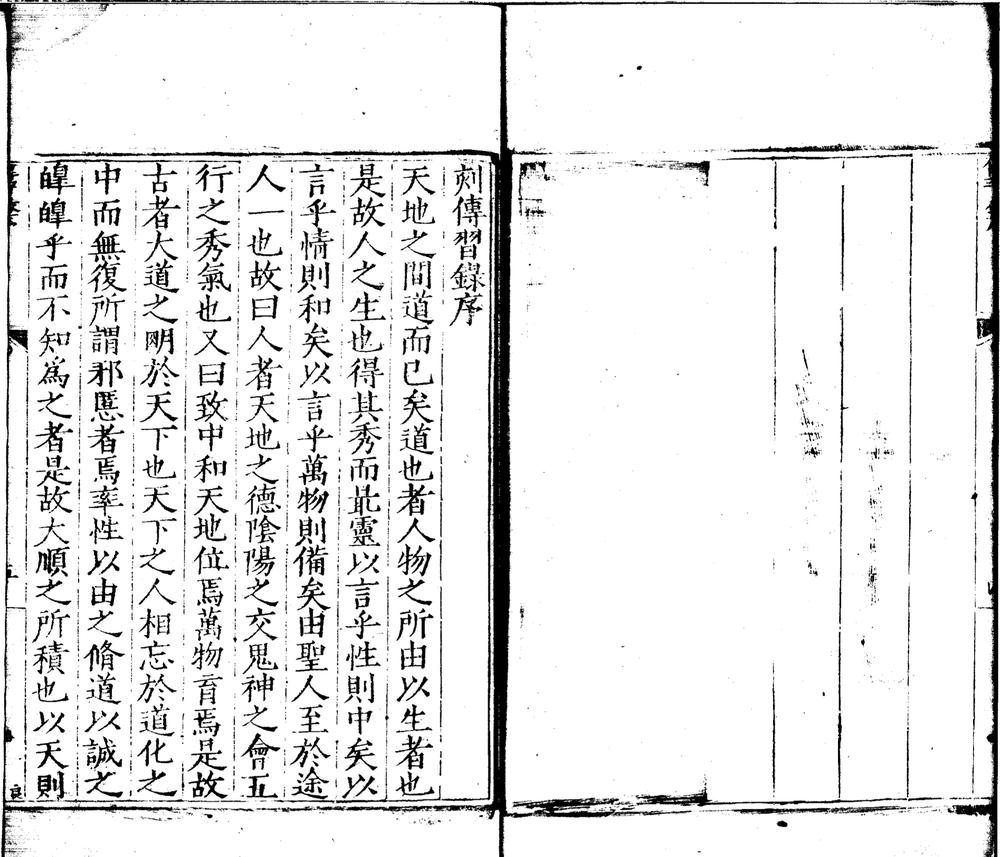 刻傳習錄序
天地之間道而已矣道也者人物之所由以生者也
是故人之生也得其秀而最靈以言乎性則中矣以
言乎情則和矣以言乎萬物則備矣由聖人至於途
人一也故曰人者天地之德陰陽之交鬼神之會五
行之秀氣也又曰致中和天地位焉萬物育焉是故
古者大道之明於天下也天下之人相忘於道化之
中而無復所謂邪慝者焉率性以由之脩道以誠之
皥皥乎而不知為之者是故大順之所積也以天則
五